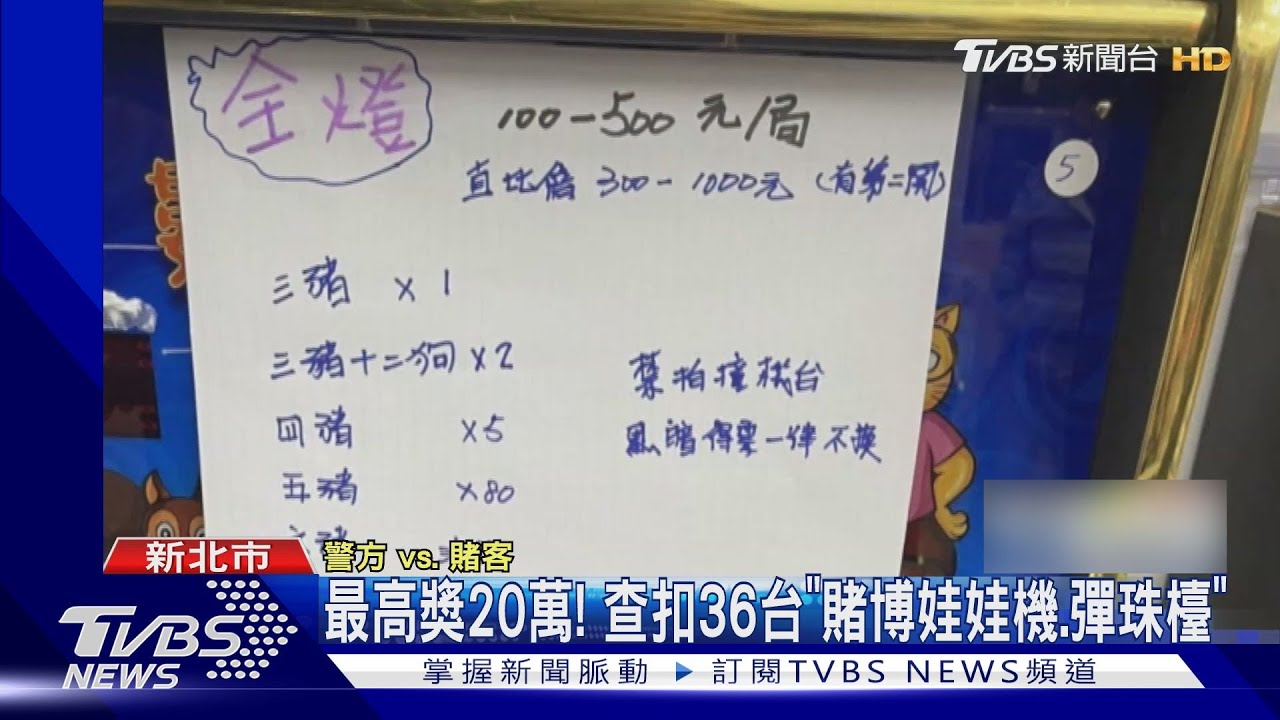 TVBS新聞台 HD
全燈
100-500元/局
5
直比倍 300-1000元 (有第二関)
三豬 ×1
三豬十二狗 ×2
禁拍撞机台
四豬 ×5
五豬 ×80
新北市
警方 vs. 賭客
最高獎20萬! 查扣36台"賭博娃娃機.彈珠檯"
TVBS NEWS
掌握新聞脈動 ▶ 訂閱TVBS NEWS頻道